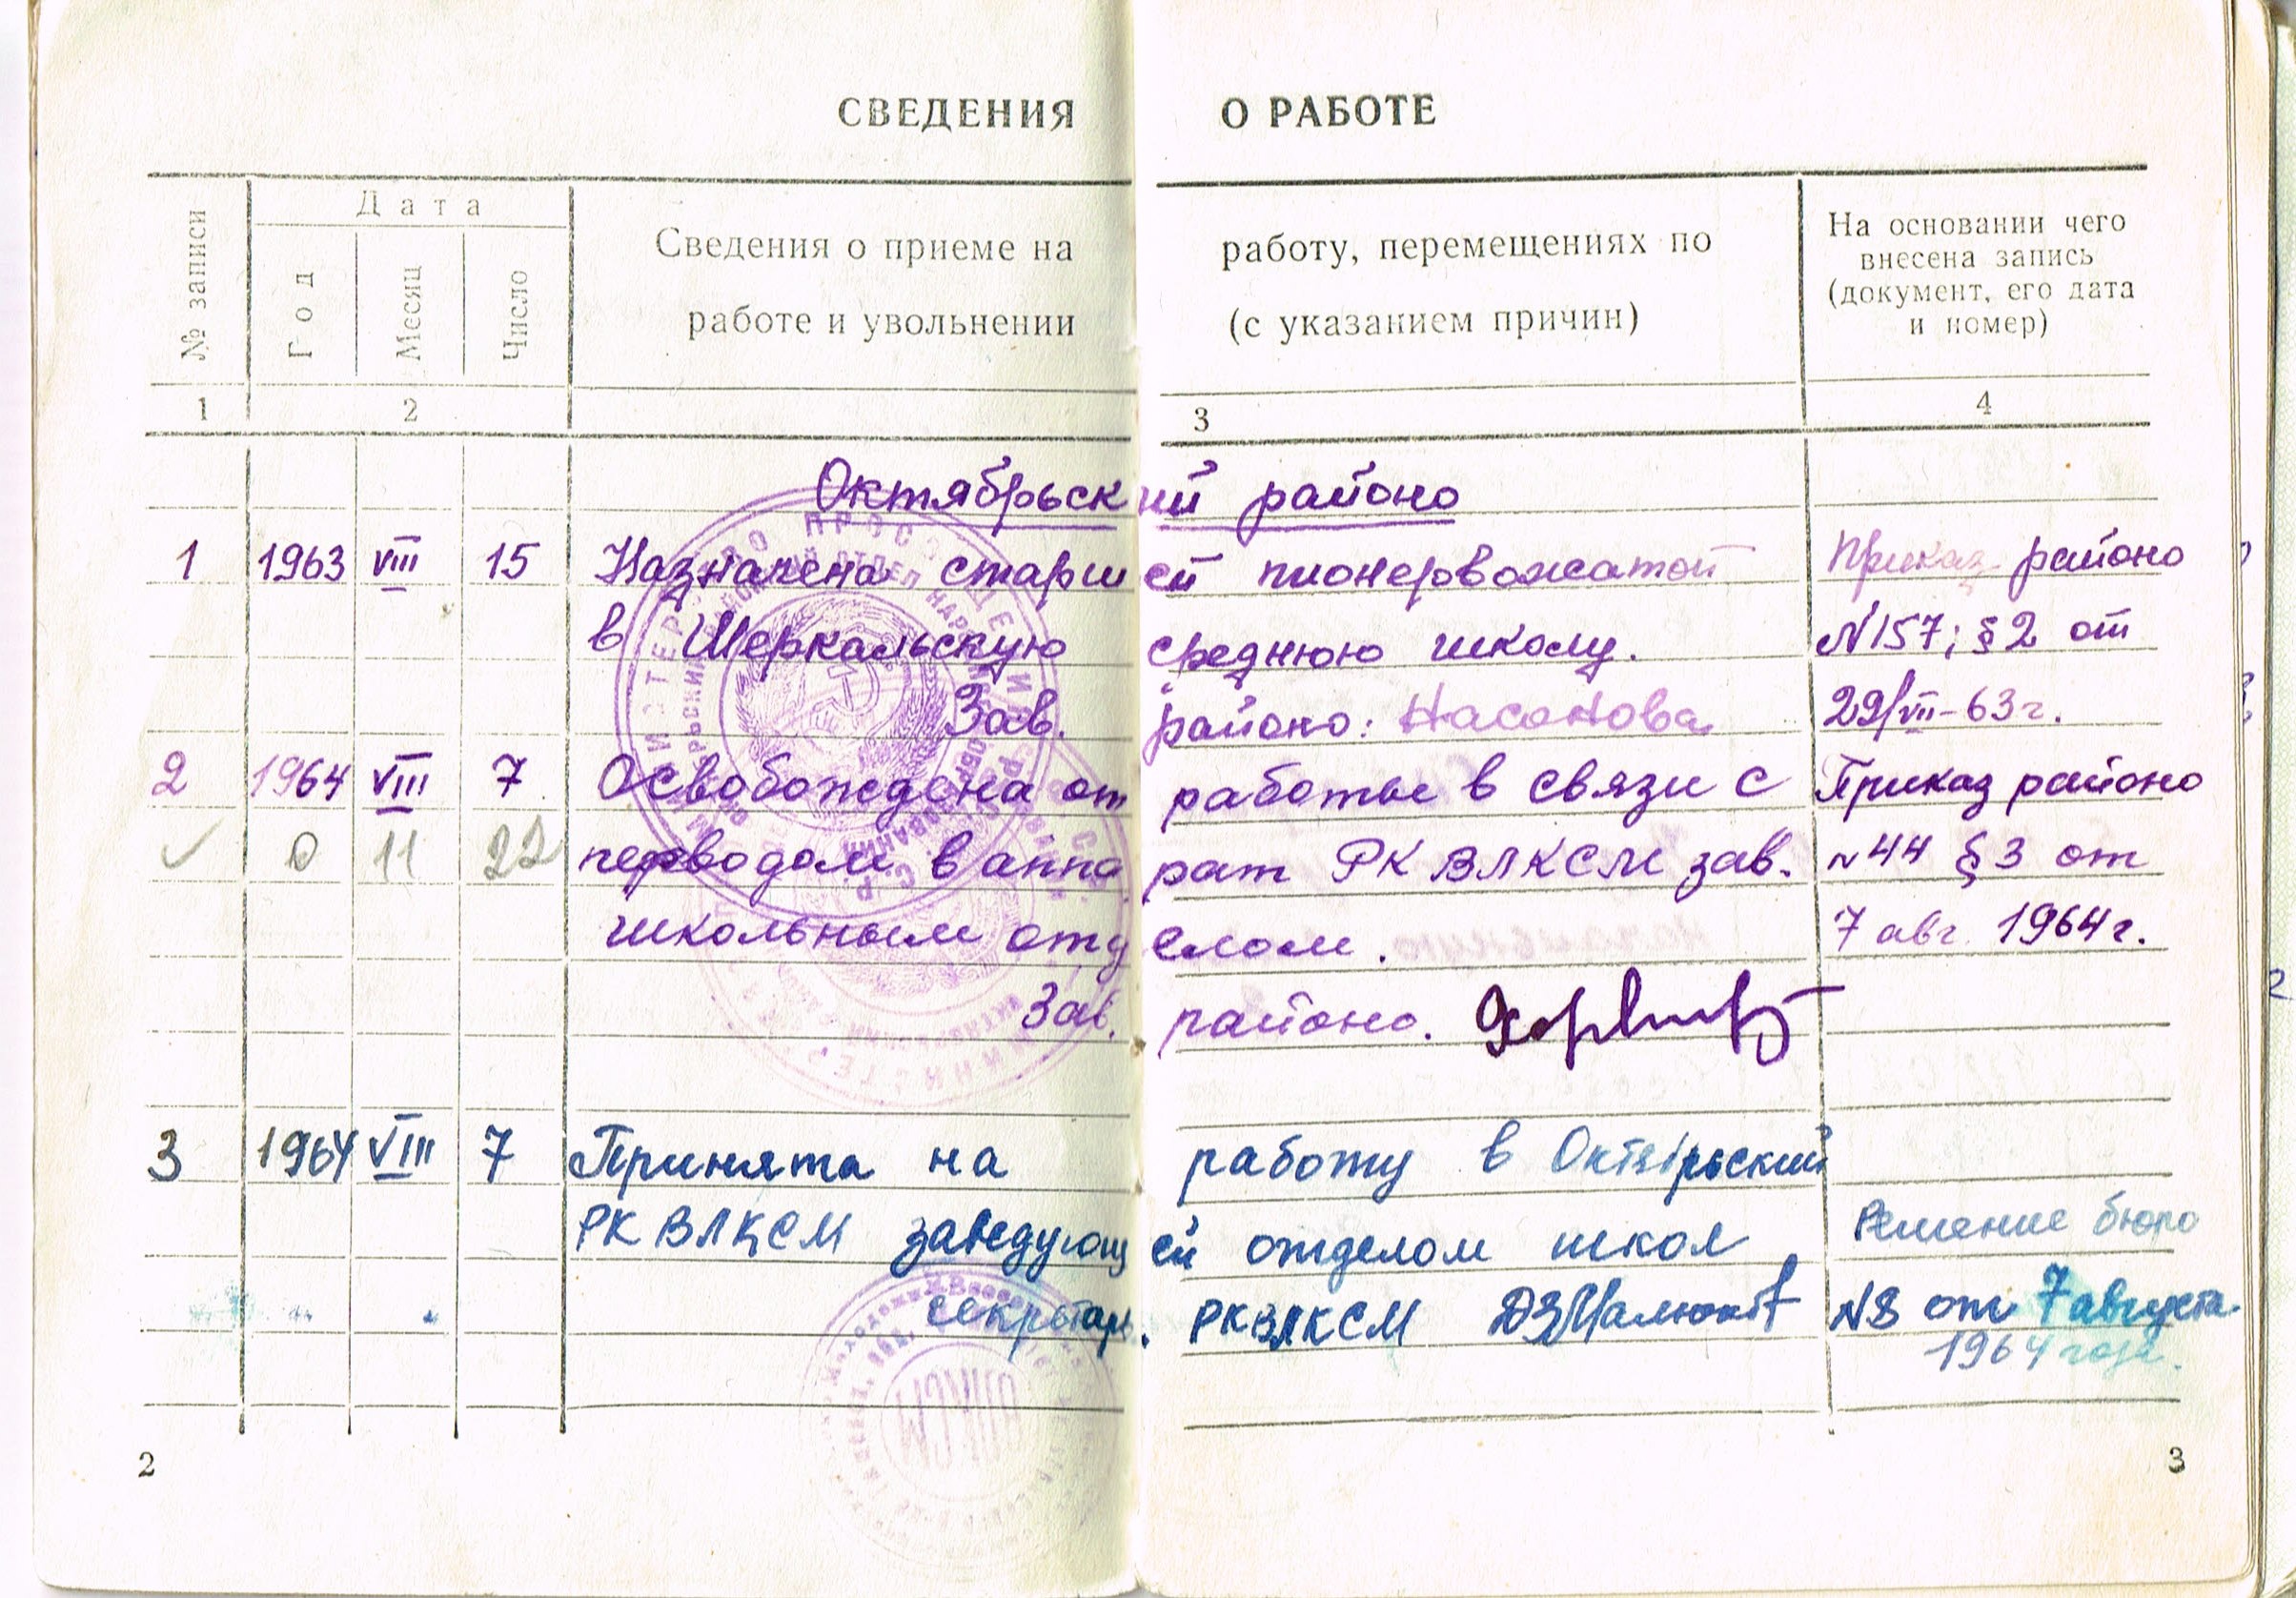 СВЕДЕНИЯ О РАБОТЕ
№ записи
Дата
Год
Месяц
Число
Сведения о приеме на работу, перемещениях по
работе и увольнении (с указанием причин)
На основании чего
внесена запись
(документ, его дата
и номер)
1 2 3 4
Октябрьский районо
1 1963 VIII 15 Назначена старшей пионервожатой Приказ районо
в Шеркальскую среднюю школу. N157; §2 от
Зав. районо: Насонова 29/VII-63г.
2 1964 VIII 7 Освобождена от работы в связи с Приказ районо
0 11 22 переводом в аппарат РК ВЛКСМ зав. N44 §3 от
школьным отделом. 7 авг. 1964г.
Зав. районо.
3 1964 VIII 7 Принята на работу в Октябрьский
РК ВЛКСМ заведующей отделом школ Решение бюро
секретарь. РКВЛКСМ N8 от 7 августа
1964 года.
2 3